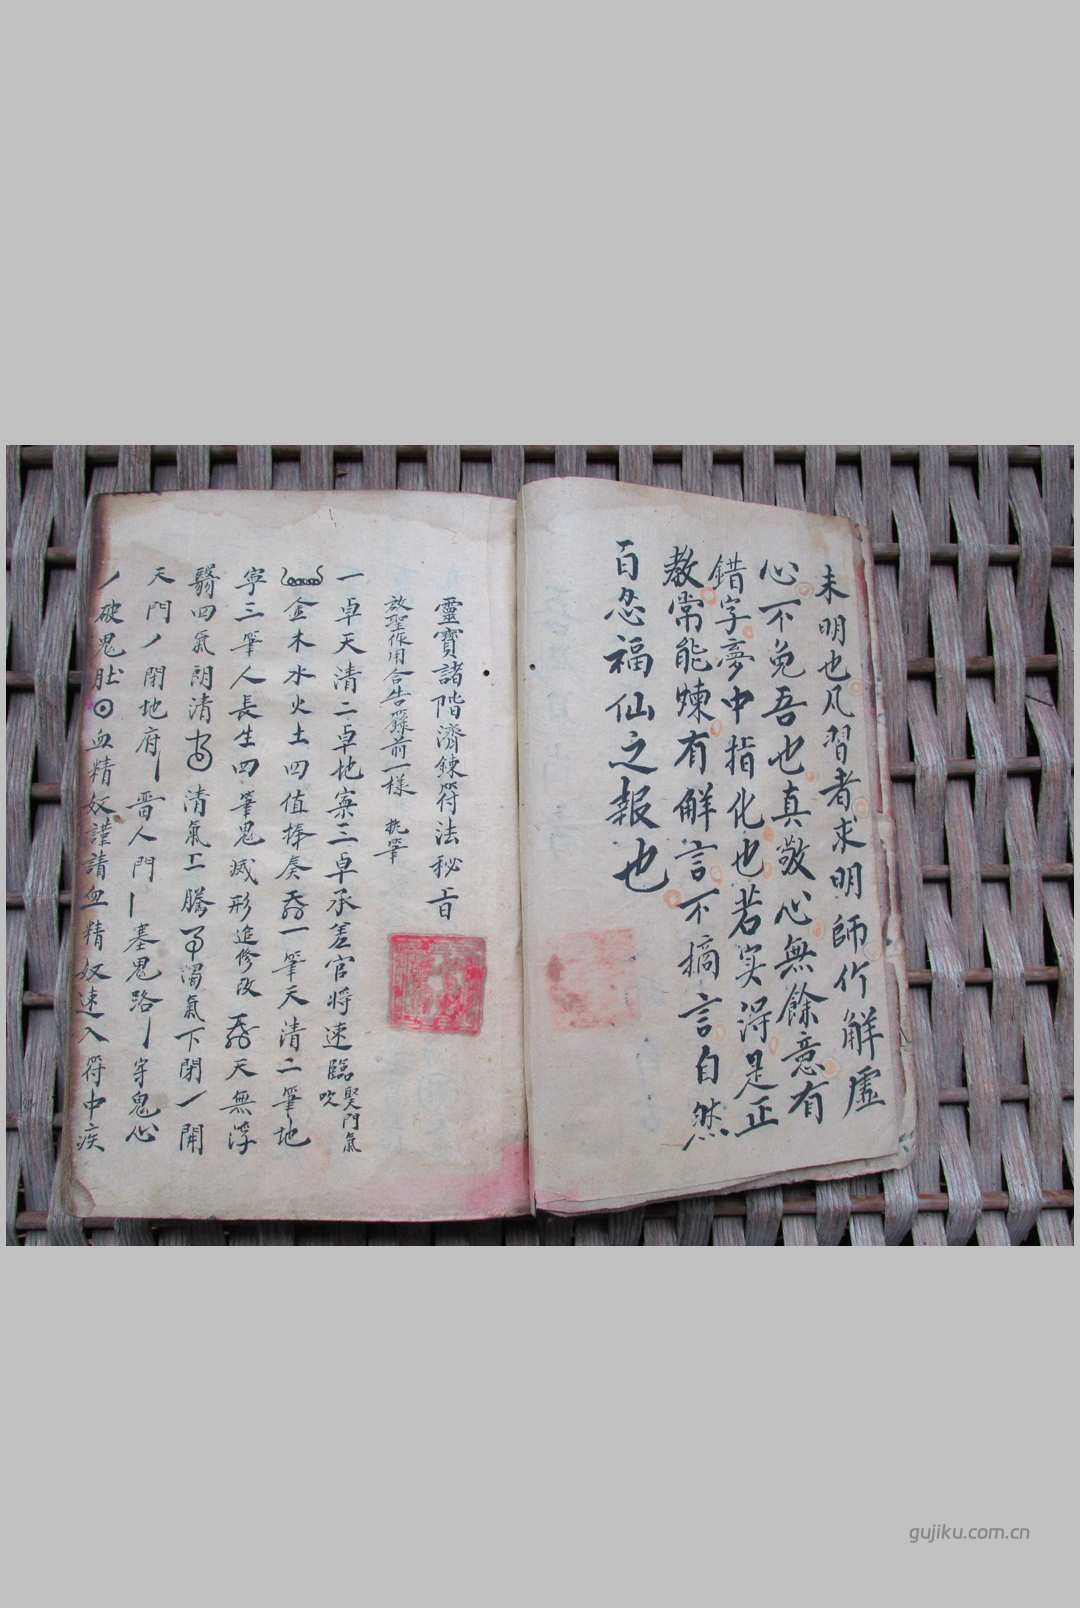 未明也凡習者求明師作解虛
心不免吾也真敬心無餘意有
錯字夢中指化也若实得是正
教常能煉有解言不搞言自然
百忍福仙之報也
靈寶諸階濟錬符法秘旨
放聖作用合告籙前一樣 執筆
一卓天清二卓地寧三卓承差官將速臨
吹
金木水火土四值捧奏 一筆天清二筆地
寧三筆人長生四筆鬼滅形追修改 天無浮
翳四氣朗清 清氣上騰 濁氣下閉一開
天門丿閉地府 人門丨塞鬼路丨穿鬼心
丿破鬼肚 血精奴謹請血精奴速入符中疾
gujiku.com.cn